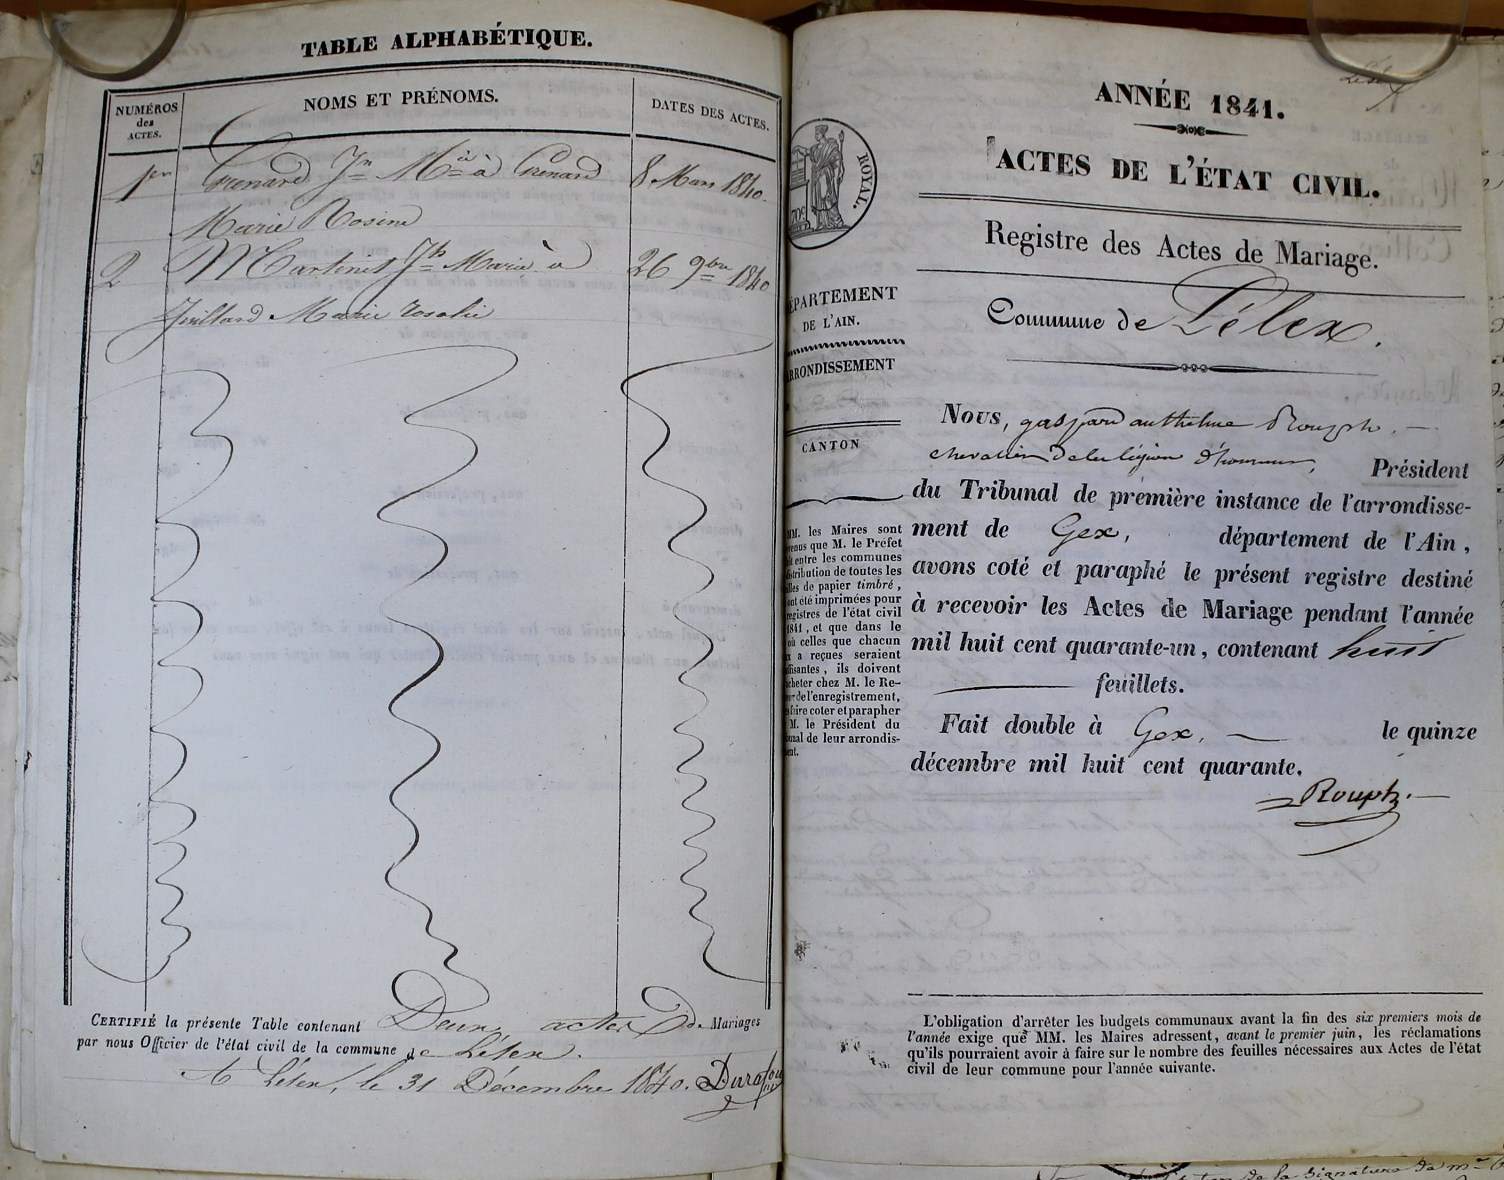 TABLE ALPHABÉTIQUE.
NUMÉROS
des
ACTES.
NOMS ET PRÉNOMS.
DATES DES ACTES.
1er Grenard Jn Mie à Grenard 8 Mars 1840.
Marie Rosine
2 Martinet Jh Marie à 26 9bre 1840
Juillard Marie rosalie
CERTIFIÉ la présente Table contenant Deux actes de Mariages
par nous Officier de l'état civil de la commune de Lélex.
A Lélex, le 31 Décembre 1840. Durafour
ANNÉE 1841.
ACTES DE L'ÉTAT CIVIL.
ROYAL.
Registre des Actes de Mariage.
Commune de Lélex.
DÉPARTEMENT
DE L'AIN.
ARRONDISSEMENT
CANTON
MM. les Maires sont
venus que M. le Préfet
entre les communes
distribution de toutes les
de papier timbré,
ont été imprimées pour
registres de l'état civil
1841, et que dans le
où celles que chacun
a reçues seraient
, ils doivent
acheter chez M. le Re-
de l'enregistrement,
faire coter et parapher
M. le Président du
de leur arrondis-
Nous, gaspard anthelme Rouph.
chevalier de la légion d'honneur, Président
du Tribunal de première instance de l'arrondisse-
ment de Gex, département de l'Ain,
avons coté et paraphé le présent registre destiné
à recevoir les Actes de Mariage pendant l'année
mil huit cent quarante-un, contenant huit
feuillets.
Fait double à Gex, le quinze
décembre mil huit cent quarante.
Rouph.
L'obligation d'arrêter les budgets communaux avant la fin des six premiers mois de
l'année exige que MM. les Maires adressent, avant le premier juin, les réclamations
qu'ils pourraient avoir à faire sur le nombre des feuilles nécessaires aux Actes de l'état
civil de leur commune pour l'année suivante.
de la signature de mr